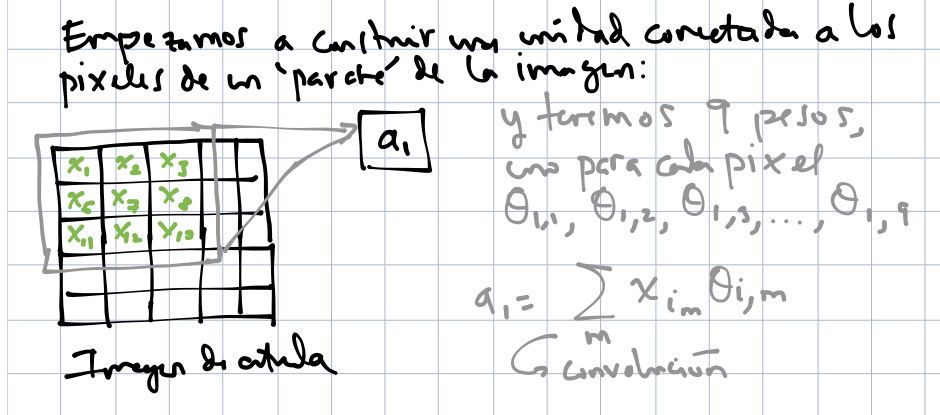 Empezamos a construir una unidad conectada a los
pixeles de un 'parche' de la imagen:
x₁ x₂ x₃
x₆ x₇ x₈
x₁₁ x₁₂ x₁₃
a₁
y tenemos 9 pesos,
uno para cada pixel
θ₁,₁, θ₁,₂, θ₁,₃, ..., θ₁,₉
a₁ = ∑ₘ x_{iₘ} θ_{i,m}
convolución
Imagen de entrada